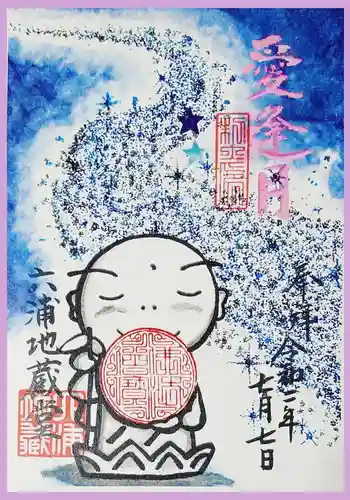 愛逢月
奉拝
令和二年
七月七日
六浦地蔵堂